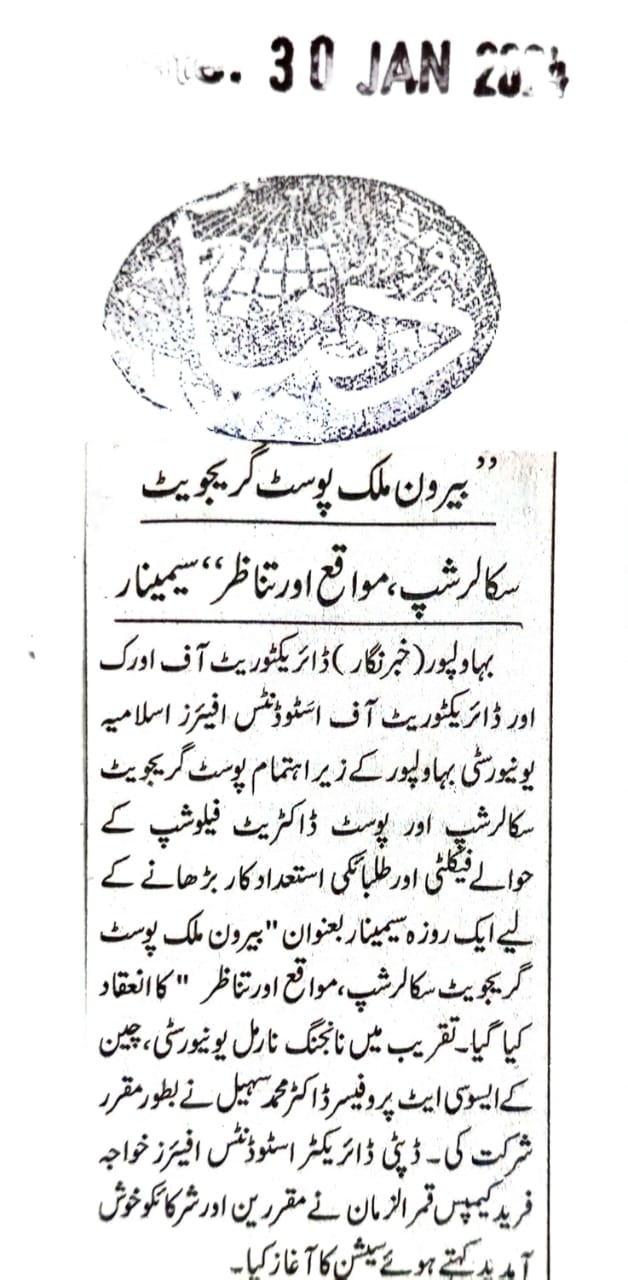 30 JAN 2024
دنیا
”بیرون ملک پوسٹ گریجویٹ
سکالرشپ،مواقع اور تناظر“ سیمینار
بہاولپور(خبرنگار)ڈائریکٹوریٹ آف اورک
اور ڈائریکٹوریٹ آف اسٹوڈنٹس افیئرز اسلامیہ
یونیورسٹی بہاولپور کے زیر اہتمام پوسٹ گریجویٹ
سکالرشپ اور پوسٹ ڈاکٹریٹ فیلوشپ کے
حوالے فیکلٹی اور طلبا کی استعداد کار بڑھانے کے
لیے ایک روزہ سیمینار بعنوان "بیرون ملک پوسٹ
گریجویٹ سکالرشپ،مواقع اور تناظر " کا انعقاد
کیا گیا۔تقریب میں نانجنگ نارمل یونیورسٹی، چین
کے ایسوسی ایٹ پروفیسر ڈاکٹر محمد سہیل نے بطور مقرر
شرکت کی۔ ڈپٹی ڈائریکٹر اسٹوڈنٹس افیئرز خواجہ
فرید کیمپس قمر الزمان نے مقررین اور شرکا کو خوش
آمدید کہتے ہوئے سیشن کا آغاز کیا۔